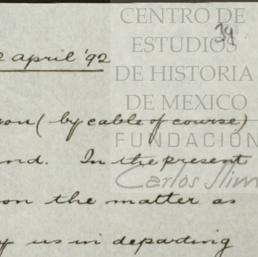 CENTRO DE
ESTUDIOS
DE HISTORIA
DE MEXICO
FUNDACIÓN
Carlos Slim
34
2 April '92
on (by cable of course)
and. In the present
on the matter as
y us in departing